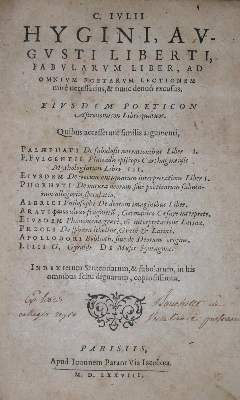 C. IVLII
HYGINI, AV-
GVSTI LIBERTI,
FABVLARVM LIBER, AD
OMNIVM POETARVM LECTIONEM
mirè necessarius, & nunc denuò excusus.
EIVSDEM POETICON
Astronomicon Libri quatuor.
Quibus accesserunt similis argumenti,
PALÆPHATI De fabulosis narrationibus Liber I.
F. FVLGENTII Placiadis episcopi Carthaginensis
Mythologiarum Libri III.
EIVSDEM De vocum antiquarum interpretatione Liber I.
PHORNVTI De natura deorum siue poeticarum fabula-
rum allegoriis speculatio.
ALBRICI Philosophi De deorum imaginibus Liber.
ARATI
EIVSDEM Phænomena græcè,
PROCLI De sphæra libellus, Græcè & Latinè.
APOLLODORI Biblioth. siue de Deorum origine.
LILII G. Gyraldi De Musis Syntagma.
INDEX rerum Sententiarum, & fabularum, in his
omnibus scitu dignarum, copiosissimus.
PARISIIS,
Apud Ioannem Parant Via Iacobæa.
M. D. LXXVIII.